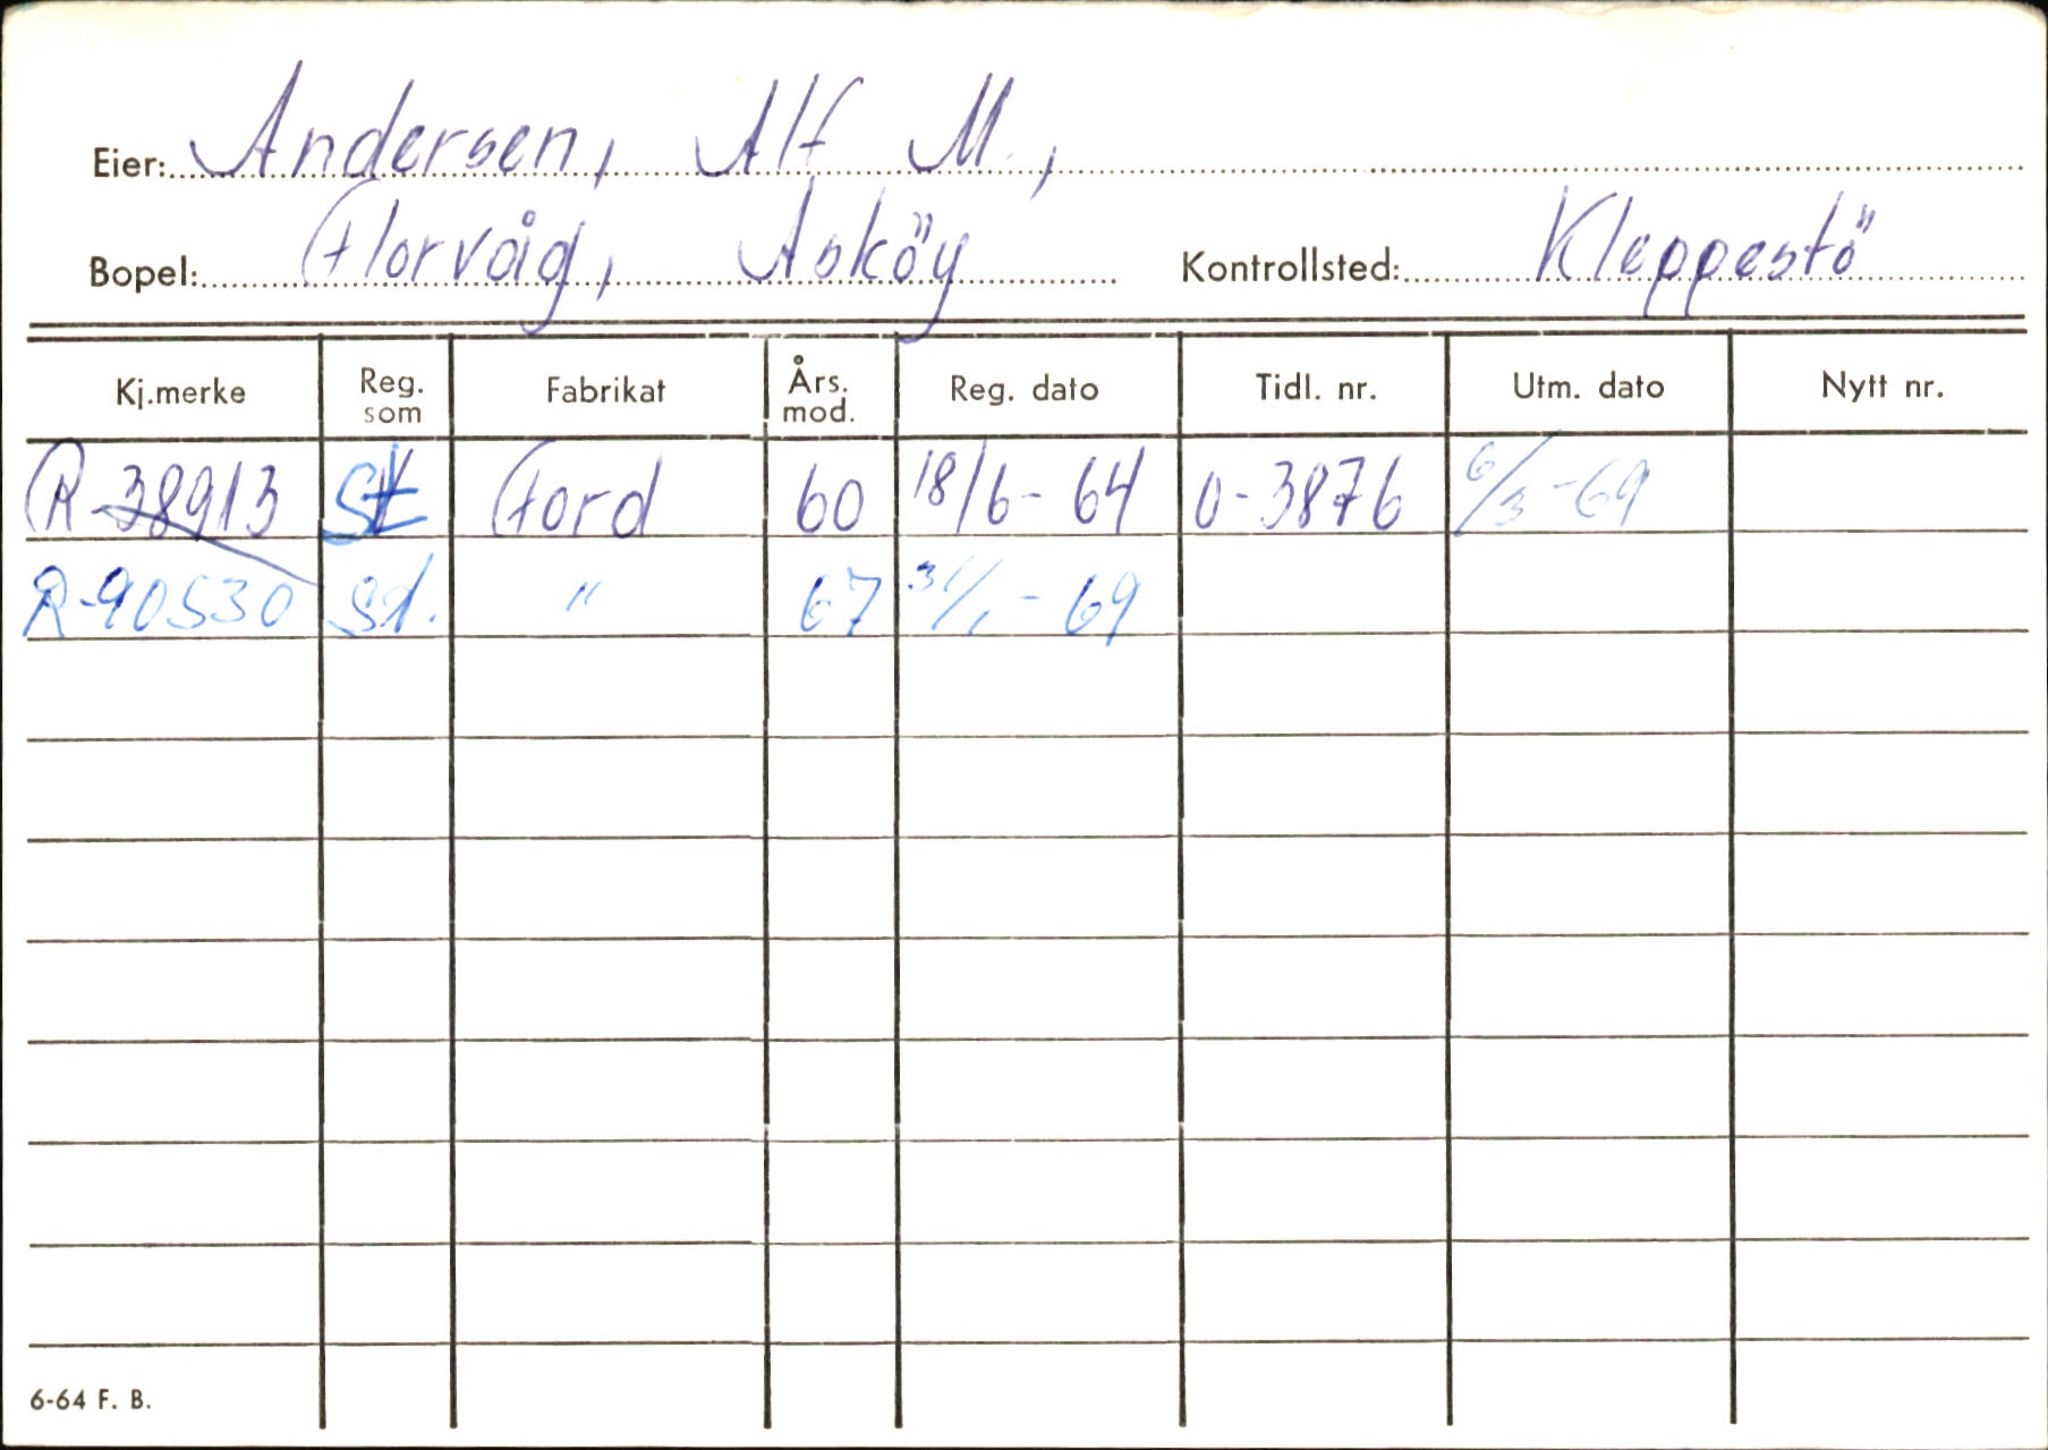 Eier: Andersen, Alf M.,
Bopel: Florvåg, Asköy Kontrollsted: Kleppestö
Kj.merke Reg. som Fabrikat Års. mod. Reg. dato Tidl. nr. Utm. dato Nytt nr.
R-38913 St Ford 60 18/6-64 O-3876 6/3-69
R-90530 St. " 67 31/1-69
6-64 F. B.